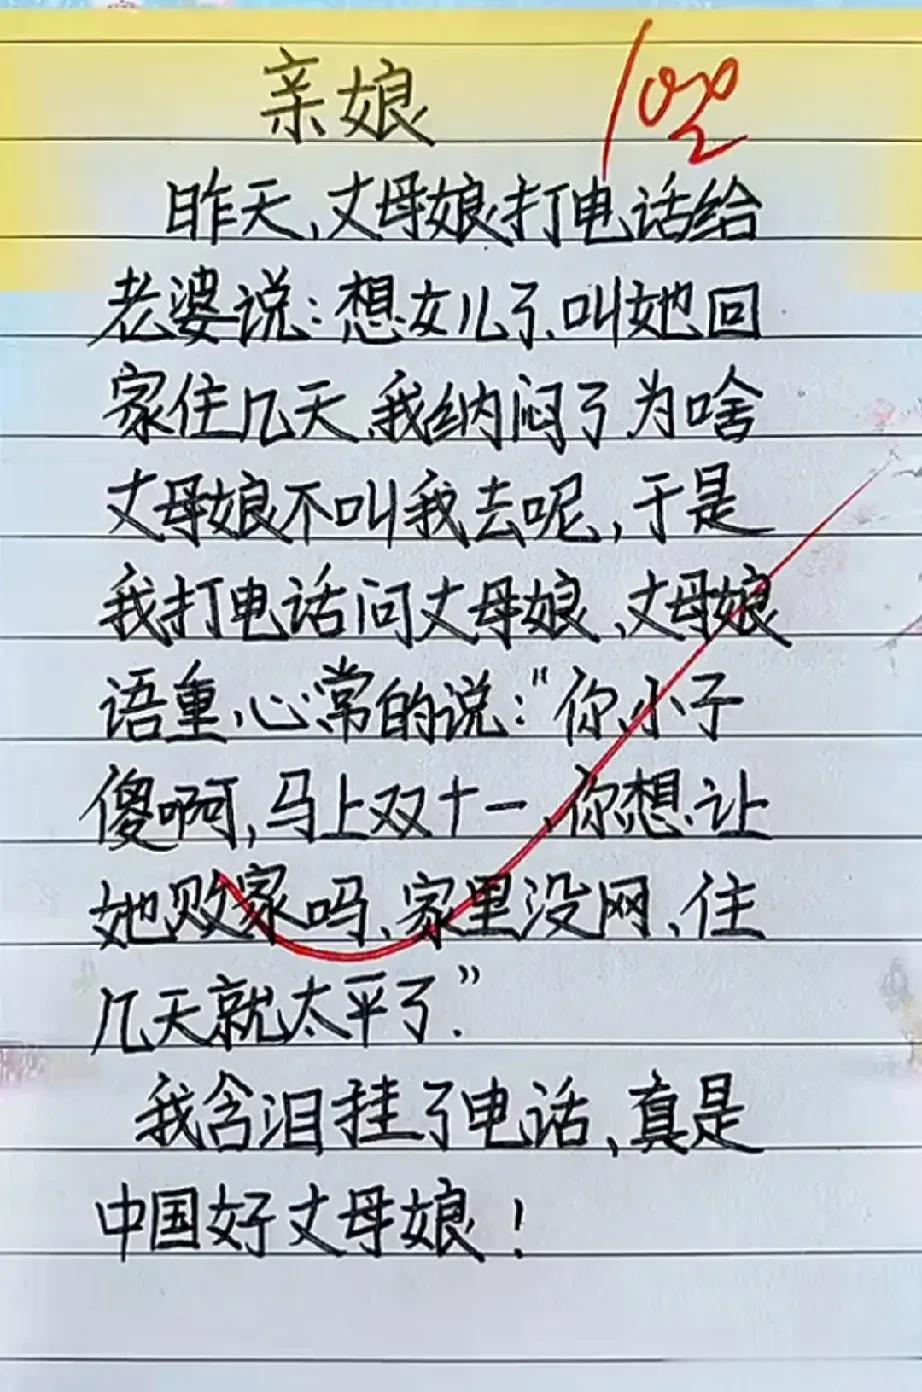 亲娘 100
昨天、丈母娘打电话给
老婆说:想女儿了、叫她回
家住几天、我纳闷了为啥
丈母娘不叫我去呢,于是
我打电话问丈母娘、丈母娘
语重心常的说:“你小子
傻啊,马上双十一、你想让
她败家吗、家里没网、住
几天就太平了.”
我含泪挂了电话、真是
中国好丈母娘!